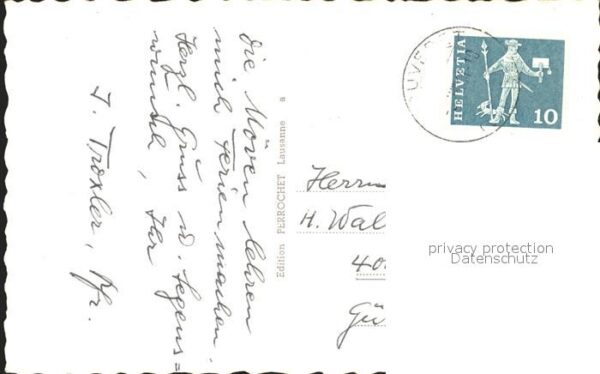 die Möven lehren
mich Ferienmachen.
Herzl. Gruss u. Segens=
wünsche, Ihr
J. Troxler, Pfr.
Edition PERROCHET Lausanne a
HELVETIA
10
Herrn
H. Wal
40
Gü
privacy protection
Datenschutz